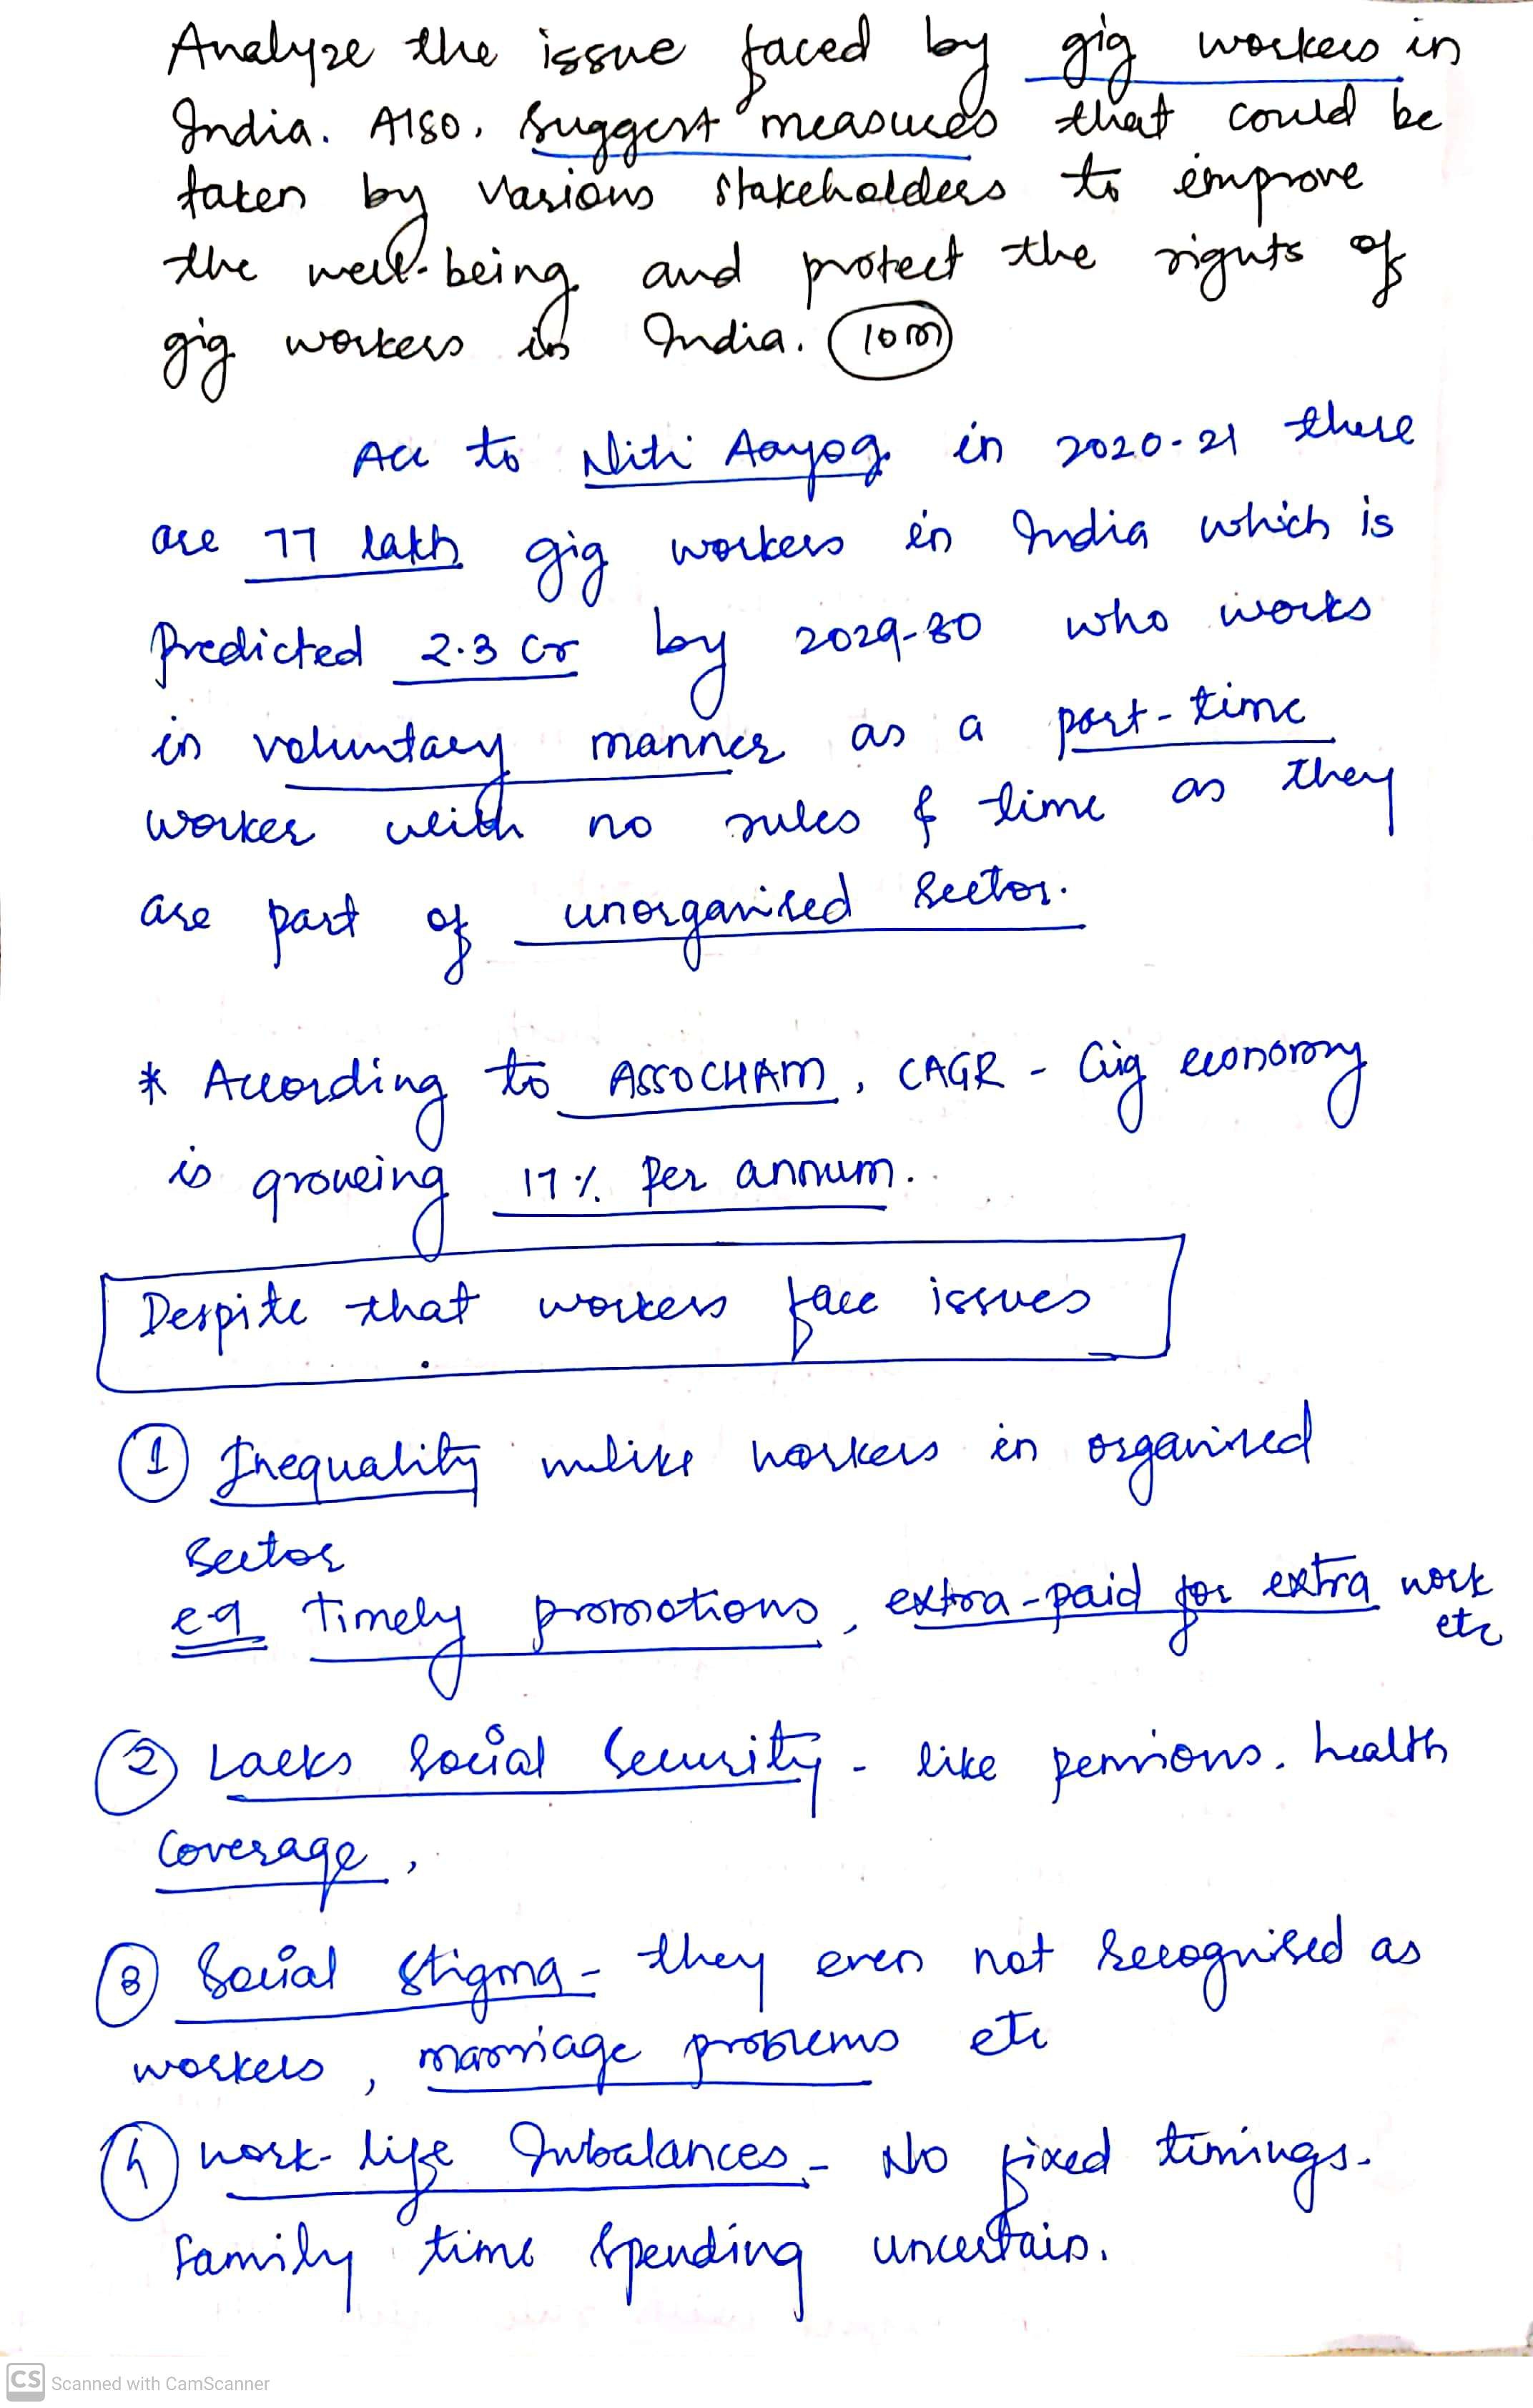 Analyze the issue faced by gig workers in
India. Also, suggest measures that could be
taken by various stakeholders to improve
the well-being and protect the rights of
gig workers in India. 10m
Acc to Niti Aayog in 2020-21 there
are 77 lakh gig workers in India which is
predicted 2.3 cr by 2029-30 who works
in voluntary manner as a part-time
worker with no rules & time as they
are part of unorganised sector.
* According to ASSOCHAM, CAGR - Gig economy
is growing 17% per annum.
Despite that workers face issues
① Inequality unlike workers in organised
sector
e.g Timely promotions, extra-paid for extra work
etc
② Lacks Social Security - like pensions, health
coverage,
③ Social Stigma - they even not recognised as
workers, marriage problems etc
④ work-life Imbalances - No fixed timings.
family time spending uncertain.
CS Scanned with CamScanner